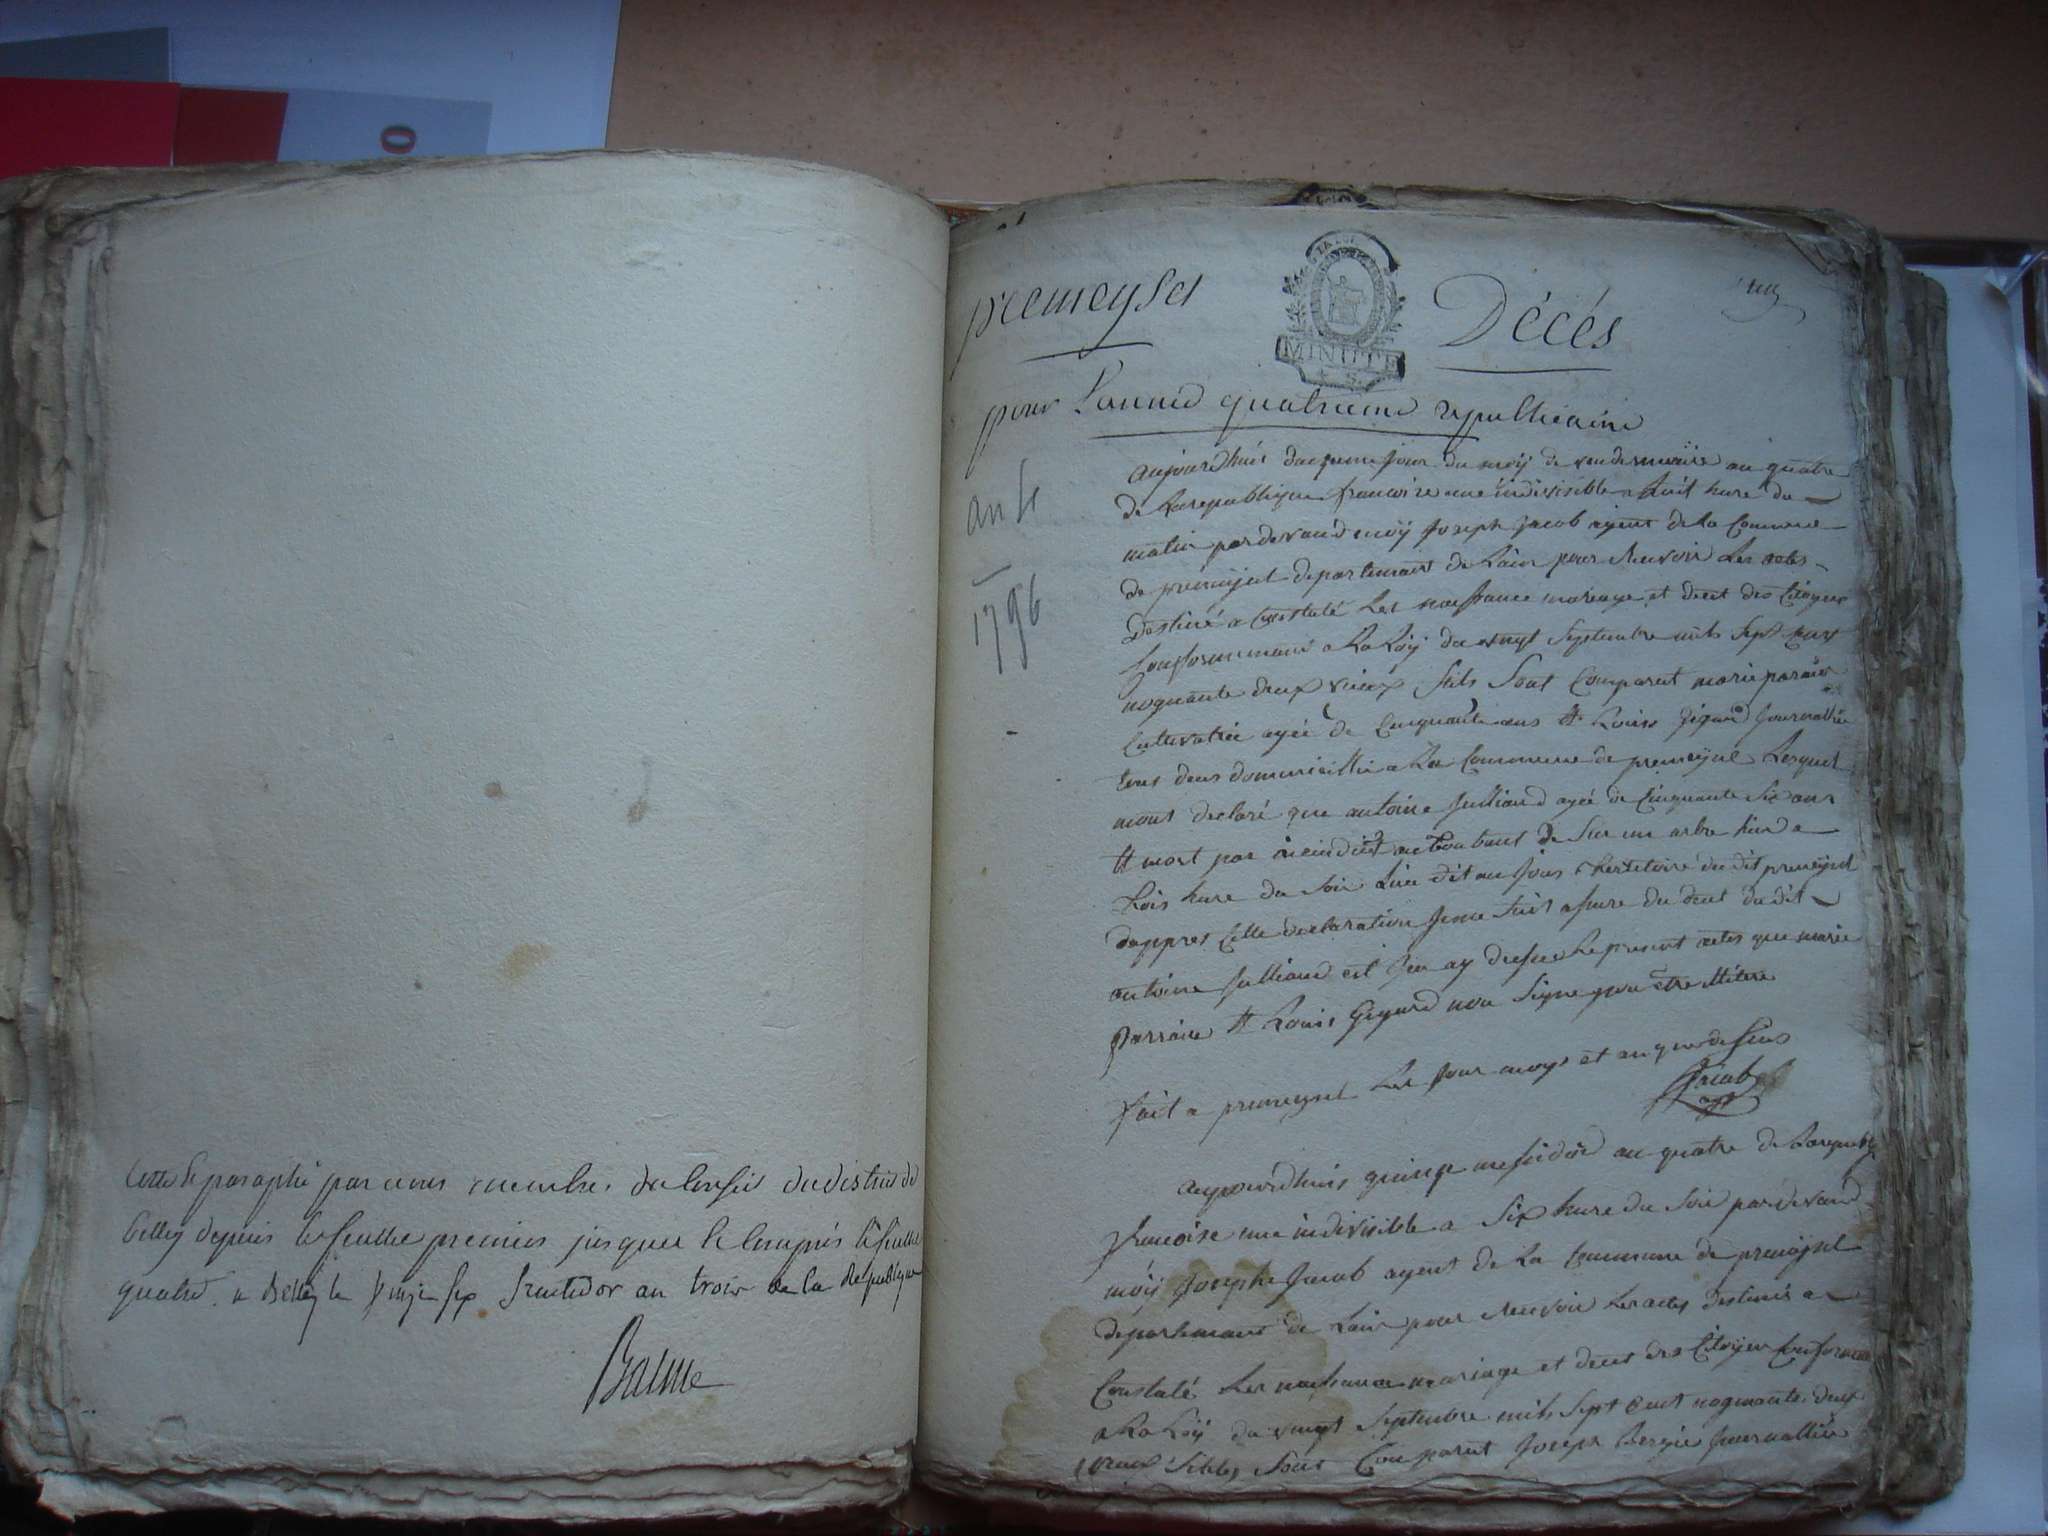 Cotté & paraphé par nous membre du Conseil du district de
Belley depuis le feuillet premier jusques & compris le feuillet
quatre. a Belley le vingt six fructidor an trois de la République
Baume
premeysel
MINUTE
Décés
pour Lannée quatrieme republicaine
an 4
1796
aujourdhuis jour du moÿ de vendemiaire an quatre
de Larepublique francoise une indivisible a huit hure du
matin pardevand moÿ Joseph Jacob agent de la Commune
de premeysel departement de Lain pour Recevoir Les actes
destiné a Constaté Les naissance mariage et decet des Citoyen
Conformement a La Loÿ du vingt Septembre mils Sept Cent
nognante deux vieux stils Sont Comparut marie parraie
Cultivatrice agée de Cinquante ans & Louis Gigard Journallier
tous deux domiciellié a La Commune de premeysel Lesquel
mont declaré que antoine Julliand agée de Cinquante Six ans
& mort par incindie en tombant de Sur un arbre hier a
trois hure du Soir Lieu dit au territoire du dit premeysel
dappres Cette declaration Jeme Suis assure du decet du dit
antoine Julliand et Jen ay dressee Le present actes que marie
Parraie & Louis Gigard non Signe pour etre illitere
fait a premeysel Les Jour moys et an que dessus
Jacob
agt
aujourdhuis quinze messidor an quatre de Larepublique
francoise une indivisible a Six hure du Soir pardevand
moÿ Joseph Jacob agent de La Commune de premeysel
departement de Lain pour Recevoir Les actes destinés a
Constaté Les naissance mariage et decet des Citoyen Conformement
a La Loÿ du vingt Septembre mils Sept Cent nognante deux
vieux Stile Sont Comparut Joseph Bergié Journallier